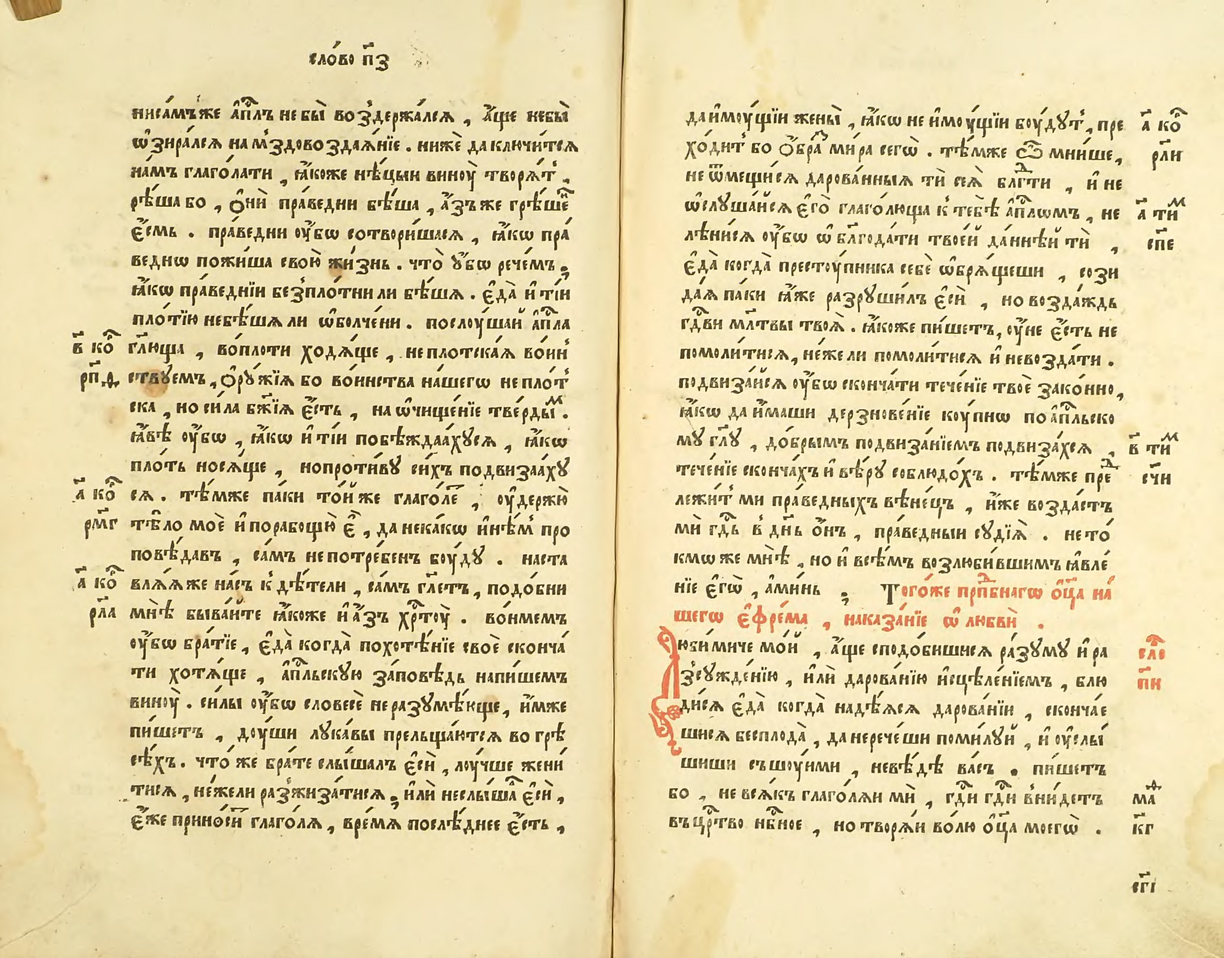 сло́во п҃з
ниса́мъже а҆пⷭ҇лъ не бы̀ воз̾держа́лсѧ , а҆́ще небы̀
ѡ҆зира́лсѧ на м̾здовоздаѧ́нїе . нижѐ да ключи́тсѧ
на́мъ глаго́лати , ꙗ҆́коже нѣ́цыи винꙋ̀ творѧ́т̾ .
рѣ́ша бо , ѻ҆нѝ пра́ведни бѣ́ша , а҆́зъ же грѣ́шеⷩ҇
є҆́смь . пра́ведни ᲂу҆́бѡ сотвори́шасѧ , ꙗ҆́кѡ пра́
веднѡ пожи́ша свою̀ жи́знь . что̀ ᲂу҆́бѡ рече́мъ ,
ꙗ҆́кѡ пра́веднїи безпло́тни ли бѣ́шѧ . є҆да̀ и҆ ті́и
пло́тїю небѣ́шѧ ли ѡ҆болче́ни . послоу́шай а҆пⷭ҇ла
в҃ коⷬ҇ гл҃юща , во́плоти ходѧ́ще , не плотска́ѧ во́ин̾
рп҃д ствꙋемъ , ѻ҆рꙋ́жїѧ бо во́инства на́шегѡ не плот̾
ска , но си́ла бж҃їѧ є҆́сть , на ѡ҆чище́нїе тве́рдыⷨ .
ꙗ҆́вѣ ᲂу҆́бѡ , ꙗ҆́кѡ и҆ ті́и побѣжда́ахꙋсѧ , ꙗ҆́кѡ
пло́ть носѧ́ще , нопроти́вꙋ си́хъ подвиза́ахꙋ
а҃ коⷬ҇ сѧ . тѣ́мже па́ки то́й же глаго́леⷮ , ᲂу҆держю̀
рм҃г тѣ́ло моѐ и҆ порабощю̀ є҆̀ , да нека́кѡ и҆нѣ́м̾ про
повѣ́давъ , са́мъ непотре́бенъ боу́дꙋ . наста
а҃ коⷬ҇ влѧ́ѧже на́съ к̾ дѣ́тели , са́мъ гл҃етъ , подо́бни
рл҃а мнѣ̀ быва́йте ꙗ҆́коже и҆ а҆́зъ хрⷭ҇тоу̀ . во́нмемъ
ᲂу҆́бѡ бра́тїе , є҆да̀ когда̀ похотѣ́нїе своѐ сконча́
ти хотѧ́ще , а҆пⷭ҇льскꙋю за́повѣдь напи́шемъ
винꙋ̀ . си́лы ᲂу҆́бѡ словесѐ не разꙋмѣ́юще , и҆́мже
пи́шетъ , дᲂу́ши лꙋка́вы прельща́ютсѧ во грѣ
сѣ́хъ . что̀ же бра́те слы́шалъ є҆сѝ , лоу́чше жени́
тисѧ , не́жели раз̾жиза́тисѧ , и҆лѝ неслы́шаⷧ҇ є҆сѝ ,
є҆́же приноси́ глаго́лѧ , вре́мѧ послѣ́днее є҆́сть ,
да и҆моу́щїи жены̀ , ꙗ҆́кѡ не и҆моу́щїи боу́дꙋт̾ , пре а҃ коⷬ҇
хо́дит̾ бо ѻ҆́браⷥ ми́ра сегѡ̀ . тѣ́мже ѽ мни́ше , рл҃и
не ѿмещи́сѧ дарова́нныѧ тѝ сеѧ̀ блгⷣти , и҆ не
ѡ҆слꙋ́шайсѧ є҆гѡ̀ глаго́люща к̾ тебѣ̀ а҆пⷭ҇ломъ , не а҃ тиⷨ
лѣни́сѧ ᲂу҆́бѡ ѡ҆ бл҃года́ти твое́й да́ннѣй тѝ , сп҃е
є҆да̀ когда̀ престоу́пника себѐ ѡ҆брѧ́щеши , сози
да́ѧ па́ки ꙗ҆́же разрꙋши́лъ є҆сѝ , но возда́ждь
гдⷭ҇ви мл҃твы твоѧ̀ . ꙗ҆́коже пи́шетъ , ᲂу҆́не є҆́сть не
помоли́тисѧ , не́же ли помоли́тисѧ и҆ невозда́ти .
подвиза́йсѧ ᲂу҆́бѡ сконча́ти тече́нїе твоѐ зако́нно ,
ꙗ҆́кѡ да и҆́маши дерзнове́нїе коу́пнѡ по а҆пⷭ҇льско
мꙋ гл҃ꙋ , до́брымъ подвиза́нїемъ подвиза́хсѧ , в҃ тиⷨ
тече́нїе сконча́хъ и҆ вѣ́рꙋ соблюдо́хъ . тѣ́мже преⷣ с҃чи
лежи́т̾ ми пра́ведныхъ вѣне́цъ , и҆́же возда́стъ
мѝ гдⷭ҇ь в̾ дн҃ь ѻ҆́нъ , пра́ведныи сꙋдїѧ̀ . не то́
кмѡ же мнѣ̀ , но и҆ всѣ́мъ возлюби́вшимъ ꙗ҆вле́
нїе є҆гѡ̀ , а҆ми́нь ; Тᲂго́же прпⷣбнагѡ ѻ҆ц҃а на́
шегѡ є҆фре́ма , наказа́нїе ѡ҆ любвѝ .
Люби́миче мо́й , а҆́ще сподо́бишисѧ ра́зꙋмꙋ и҆ ра сло
зсꙋжде́нїю , и҆лѝ дарова́нїю и҆сцѣле́нїемъ , блю п҃и
ди́сѧ є҆да̀ когда̀ надѣ́ѧсѧ дарова́нїи , сконча́е
шисѧ бесплода̀ , да нерече́ши поми́лꙋй , и҆ ᲂу҆слы́
шиши съ шоу́ими , невѣ́дѣ ва́съ . пи́шетъ
бо , не всѧ́къ глаго́лѧи мѝ , гдⷭ҇и гдⷭ҇и вни́детъ маⷴ
въ црⷭ҇тво нбⷭ҇ное , но творѧ́и во́лю ѻ҆ц҃а моегѡ̀ . к҃г
сг҃і